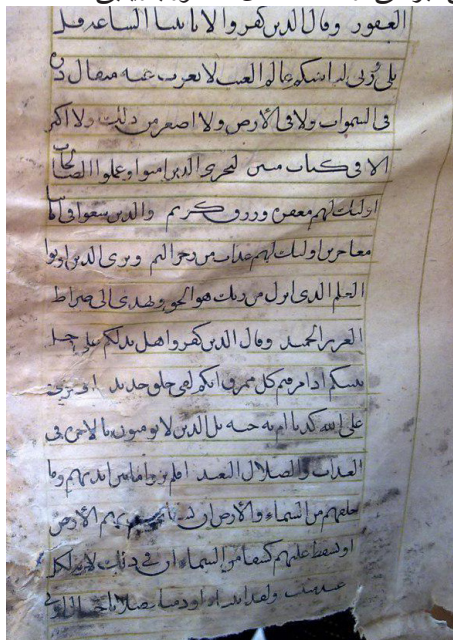 الغفور وقال الذين كفروا لا تاتينا الساعة قل
بلى وربي لتاتينكم عالم الغيب لا يعزب عنه مثقال ذرة
في السموات ولا في الأرض ولا اصغر من ذلك ولا اكبر
الا في كتاب مبين ليجزي الذين امنوا وعملوا الصالحات
اولئك لهم مغفرة ورزق كريم والذين سعوا في اياتنا
معاجزين اولئك لهم عذاب من رجز اليم ويرى الذين اوتوا
العلم الذي انزل من ربك هو الحق ويهدى الى صراط
العزيز الحميد وقال الذين كفروا هل ندلكم على رجل
ينبئكم اذا مزقتم كل ممزق انكم لفي خلق جديد افترى
على الله كذبا ام به جنة بل الذين لا يومنون بالاخرة في
العذاب والضلال البعيد افلم يروا الى ما بين ايديهم وما
خلفهم من السماء والأرض ان نشا بهم الأرض
او نسقط عليهم كسفا من السماء ان في ذلك لاية لكل
عبد منيب ولقد اتينا داود منا فضلا يا جبال اوبي